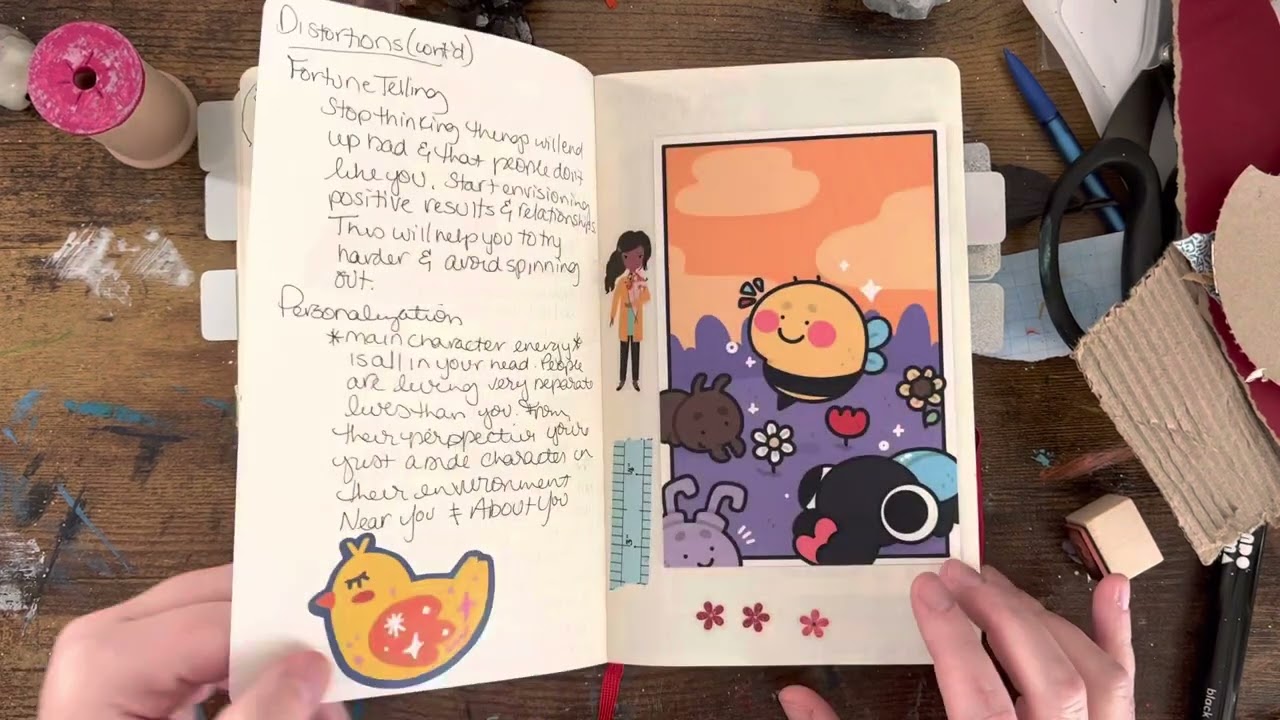 Distortions (cont'd)
Fortune Telling
Stop thinking things will end
up bad & that people don't
like you. Start envisioning
positive results & relationships.
This will help you to try
harder & avoid spinning
out.
Personalization
*main character energy*
is all in your head. People
are living very separate
lives than you. From
their perspective you're
just a side character in
their environment
Near You ≠ About You
black